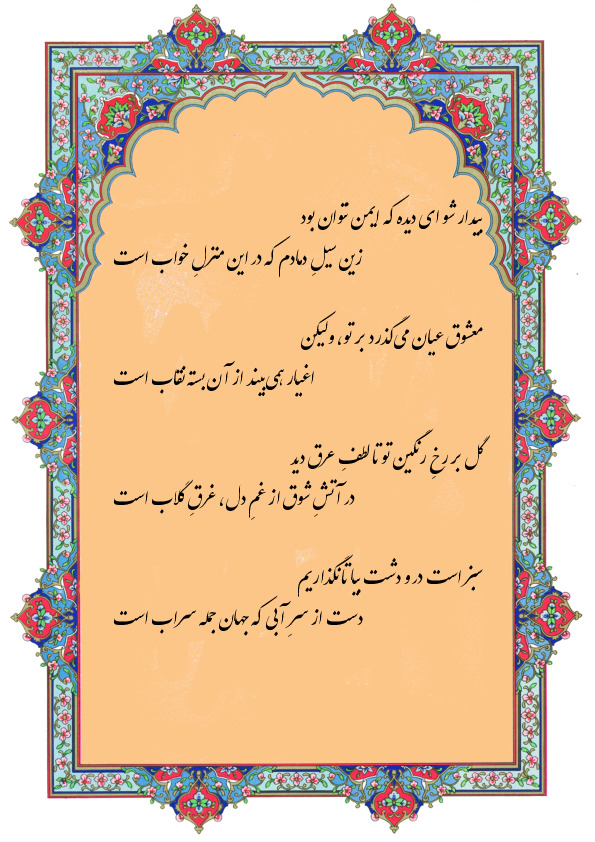 بیدار شو ای دیده که ایمن نتوان بود
زین سیلِ دمادم که در این منزلِ خواب است
معشوق عیان می‌گذرد بر تو، ولیکن
اغیار همی‌بیند از آن بسته نقاب است
گل بر رخِ رنگین تو تا لطفِ عرق دید
در آتشِ شوق از غمِ دل، غرقِ گلاب است
سبز است در و دشت بیا تا نگذاریم
دست از سرِ آبی که جهان جمله سراب است